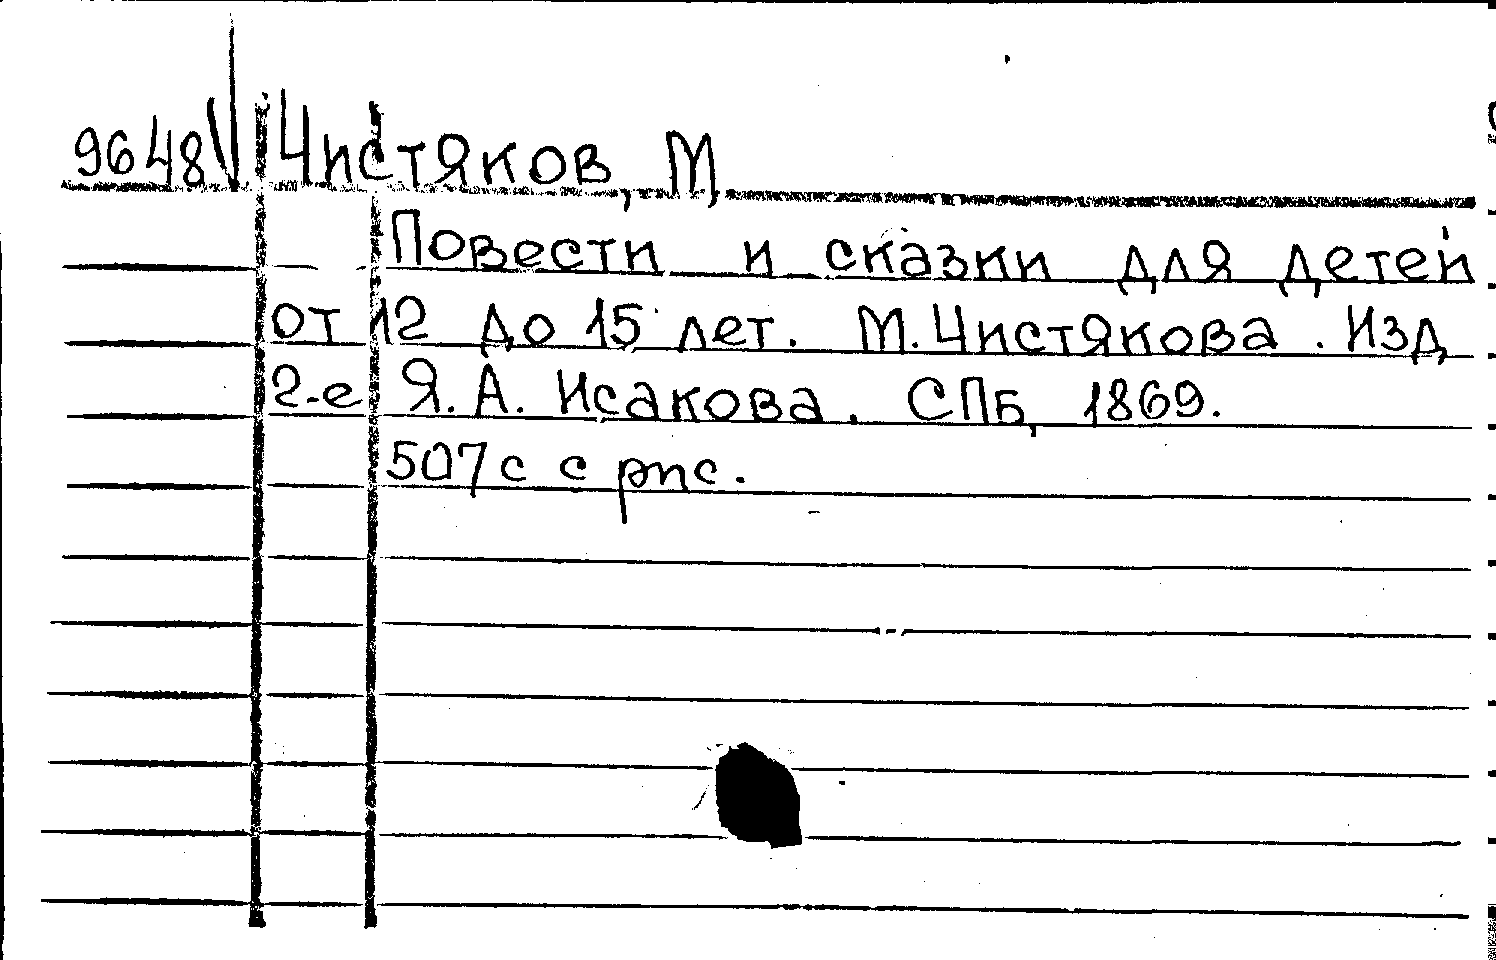 9648 Чистяков, М
Повести и сказки для детей
от 12 до 15 лет. М. Чистякова. Изд
2-е Я. А. Исакова. СПБ, 1869.
507с с рис.